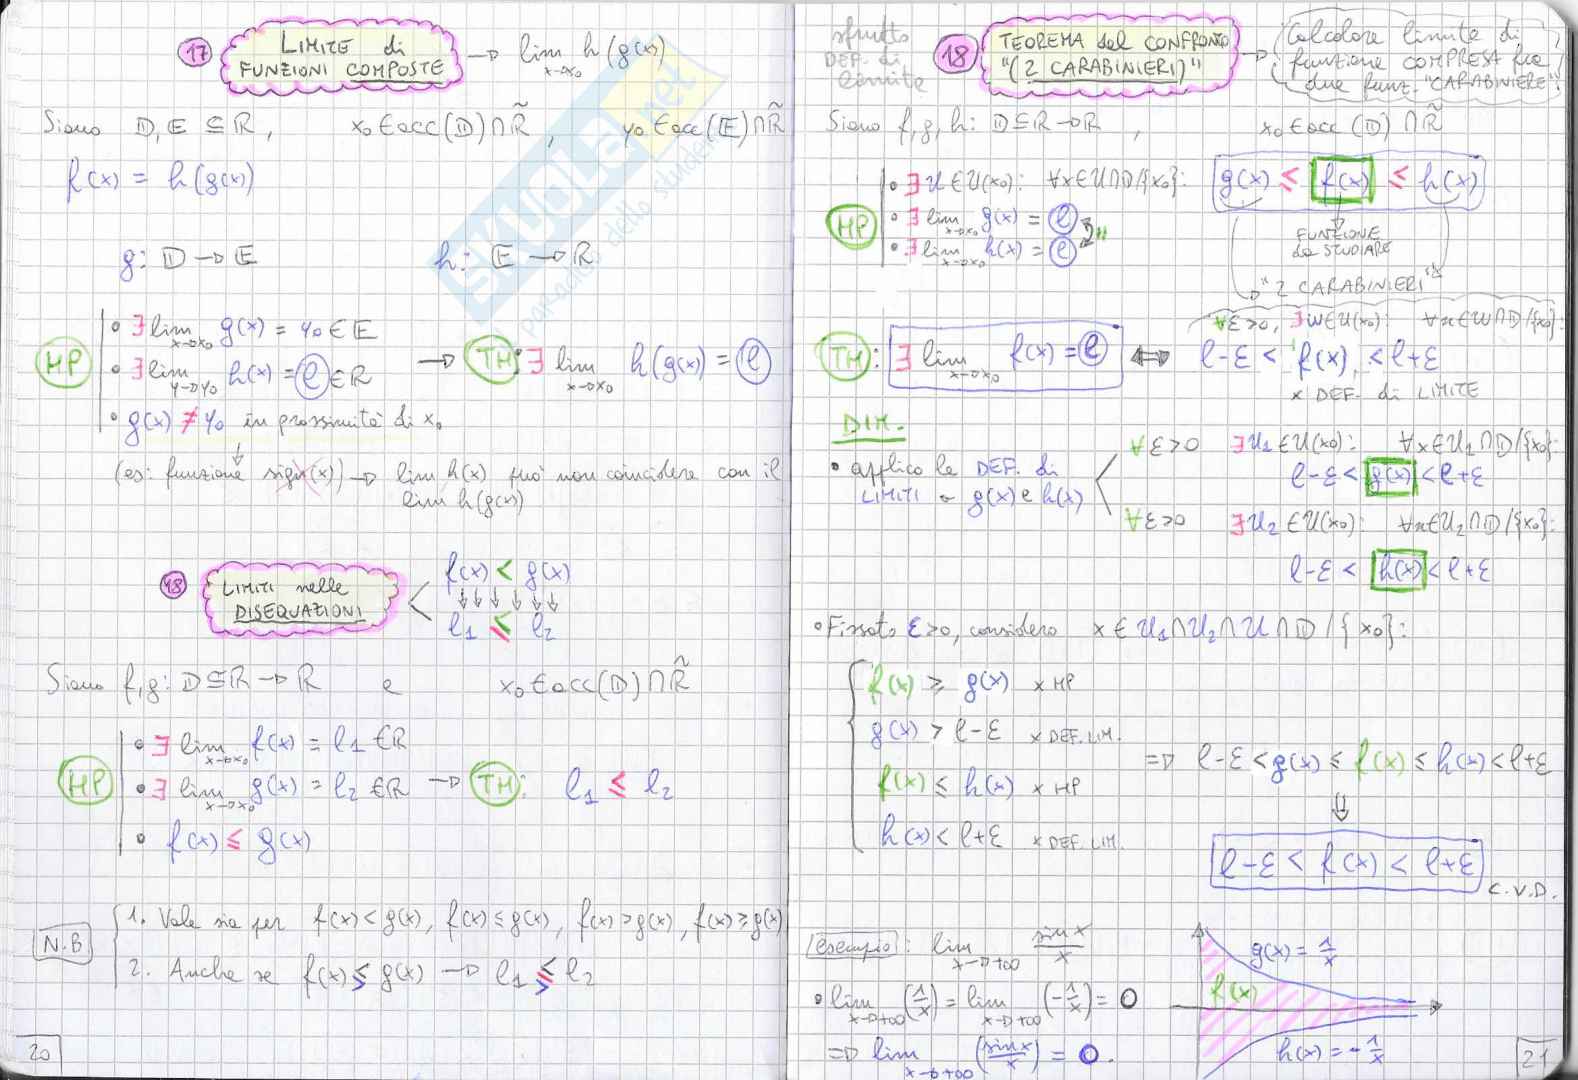 17 LIMITE di
FUNZIONI COMPOSTE → lim h(g(x))
x→x₀
Siano D, E ⊆ ℝ, x₀ ∈ acc(D)∩ℝ̃, y₀ ∈ acc(E)∩ℝ̃
f(x) = h(g(x))
g: D → E h: E → ℝ
HP
• ∃ lim g(x) = y₀ ∈ E
x→x₀
• ∃ lim h(x) = l ∈ ℝ
y→y₀
• g(x) ≠ y₀ in prossimità di x₀
→ TH: ∃ lim h(g(x)) = l
x→x₀
(es: funzione sign(x)) → lim h(x) può non coincidere con il
lim h(g(x))
18 LIMITI nelle
DISEQUAZIONI
f(x) < g(x)
↓↓↓↓↓↓
l₁ ≤ l₂
Siano f,g: D⊆ℝ→ℝ e x₀ ∈ acc(D)∩ℝ̃
HP
• ∃ lim f(x) = l₁ ∈ ℝ
x→x₀
• ∃ lim g(x) = l₂ ∈ ℝ → TH: l₁ ≤ l₂
x→x₀
• f(x) ≤ g(x)
N.B
1. Vale sia per f(x)<g(x), f(x)≤g(x), f(x)>g(x), f(x)≥g(x)
2. Anche se f(x) ≶ g(x) → l₁ ⋚ l₂
20
SKUOLA.net
paradiso dello studente
sfrutto
DEF. di
limite
18 TEOREMA del CONFRONTO
"(2 CARABINIERI)"
→ Calcolare limite di
funzione COMPRESA fra
due funz. "CARABINIERE"
Siano f,g,h: D⊆ℝ→ℝ, x₀ ∈ acc(D)∩ℝ̃
HP
• ∃ U∈U(x₀): ∀x∈U∩D/{x₀}: g(x) ≤ f(x) ≤ h(x)
• ∃ lim g(x) = l
x→x₀
• ∃ lim h(x) = l
x→x₀
=
FUNZIONE
da STUDIARE
"2 CARABINIERI"
TH: ∃ lim f(x) = l
x→x₀
⟺
∀ε>0, ∃W∈U(x₀): ∀x∈W∩D/{x₀}:
l-ε < f(x) < l+ε
x DEF. di LIMITE
DIM.
• applico la DEF. di
LIMITI a g(x) e h(x)
∀ε>0 ∃U₁∈U(x₀): ∀x∈U₁∩D/{x₀}:
l-ε < g(x) < l+ε
∀ε>0 ∃U₂∈U(x₀): ∀x∈U₂∩D/{x₀}:
l-ε < h(x) < l+ε
• Fissato ε>0, considero x∈U₁∩U₂∩U∩D/{x₀}:
f(x) ≥ g(x) x HP
g(x) > l-ε x DEF. LIM.
f(x) ≤ h(x) x HP
h(x) < l+ε x DEF. LIM.
⇒ l-ε < g(x) ≤ f(x) ≤ h(x) < l+ε
⇓
l-ε < f(x) < l+ε
C.V.D.
esempio: lim sinx/x
x→+∞
• lim (1/x) = lim (-1/x) = 0
x→+∞ x→+∞
⇒ lim (sinx/x) = 0.
x→+∞
g(x) = 1/x
f(x)
h(x) = -1/x
21